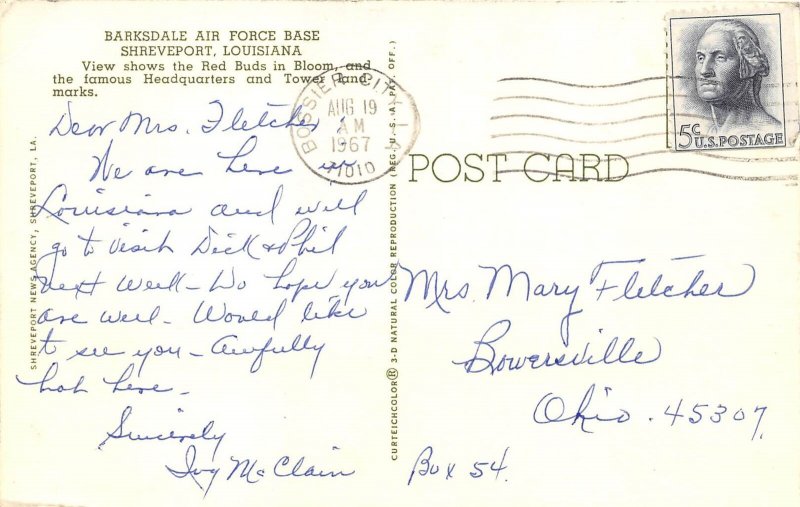 BARKSDALE AIR FORCE BASE
SHREVEPORT, LOUISIANA
View shows the Red Buds in Bloom, and
the famous Headquarters and Tower land-
marks.
Dear Mrs. Fletcher;
We are here in
Louisiana and will
go to visit Dick & Phil
next week - Do hope you
are well - Would like
to see you - Awfully
hot here -
Sincerely
Ivy McClain
SHREVEPORT NEWS AGENCY, SHREVEPORT, LA.
CURTEICHCOLOR® 3-D NATURAL COLOR REPRODUCTION (REG. U. S. A. PAT. OFF.)
BOSSIER CITY
AUG 19
AM
1967
71010
5c U.S. POSTAGE
POST CARD
Mrs. Mary Fletcher
Bowersville
Ohio. 45307
Box 54.